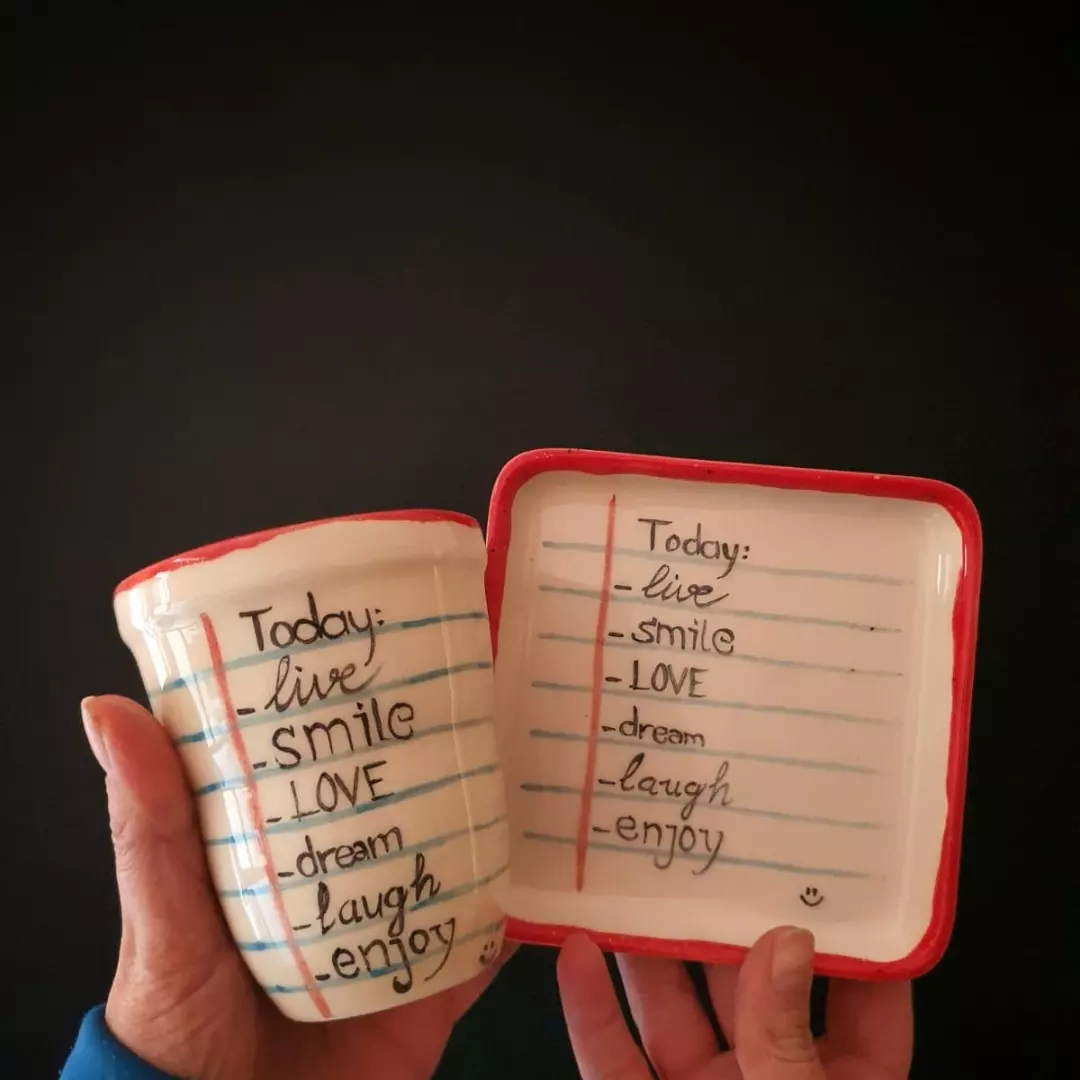 Today:
- live
- smile
- LOVE
- dream
- laugh
- enjoy
Today:
- live
- smile
- LOVE
- dream
- laugh
- enjoy